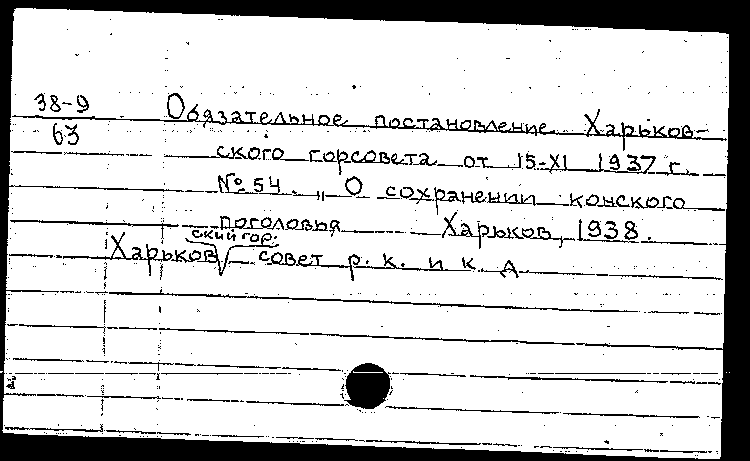 38-9
63
Обязательное постановление Харьков-
ского горсовета от 15-XI 1937 г.
№ 54. „О сохранении конского
поголовья Харьков, 1938.
ский гор.
Харьков совет р. к. и к. д.